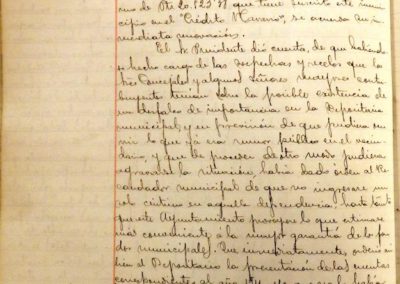 mo de Pts 20.123'47 que tiene suscrito este muni-
cipio en el "Crédito Navarro", se acuerda su in-
mediata renovación.
El Sr. Presidente dió cuenta, de que habiendo
se hecho cargo de las sospechas y recelos que los
Sres Concejales y algunos Señores mayores contri-
buyentes tenían sobre la posible existencia de
un desfalco de importancia en la Depositaria
municipal, y en previsión de que pudiera
lo que ya era rumor público en el vecin-
dario, y que de proceder de otro modo pudiera
agravarse la situación, había dado orden al Re-
caudador municipal de que no ingresare un
solo céntimo en aquella dependencia, hasta tanto
que este Ayuntamiento provea lo que estimare
más conveniente á la mayor garantía de los fon-
dos municipales. Que inmediatamente, ordenó tam-
bién al Depositario la presentación de las cuentas
correspondientes al año